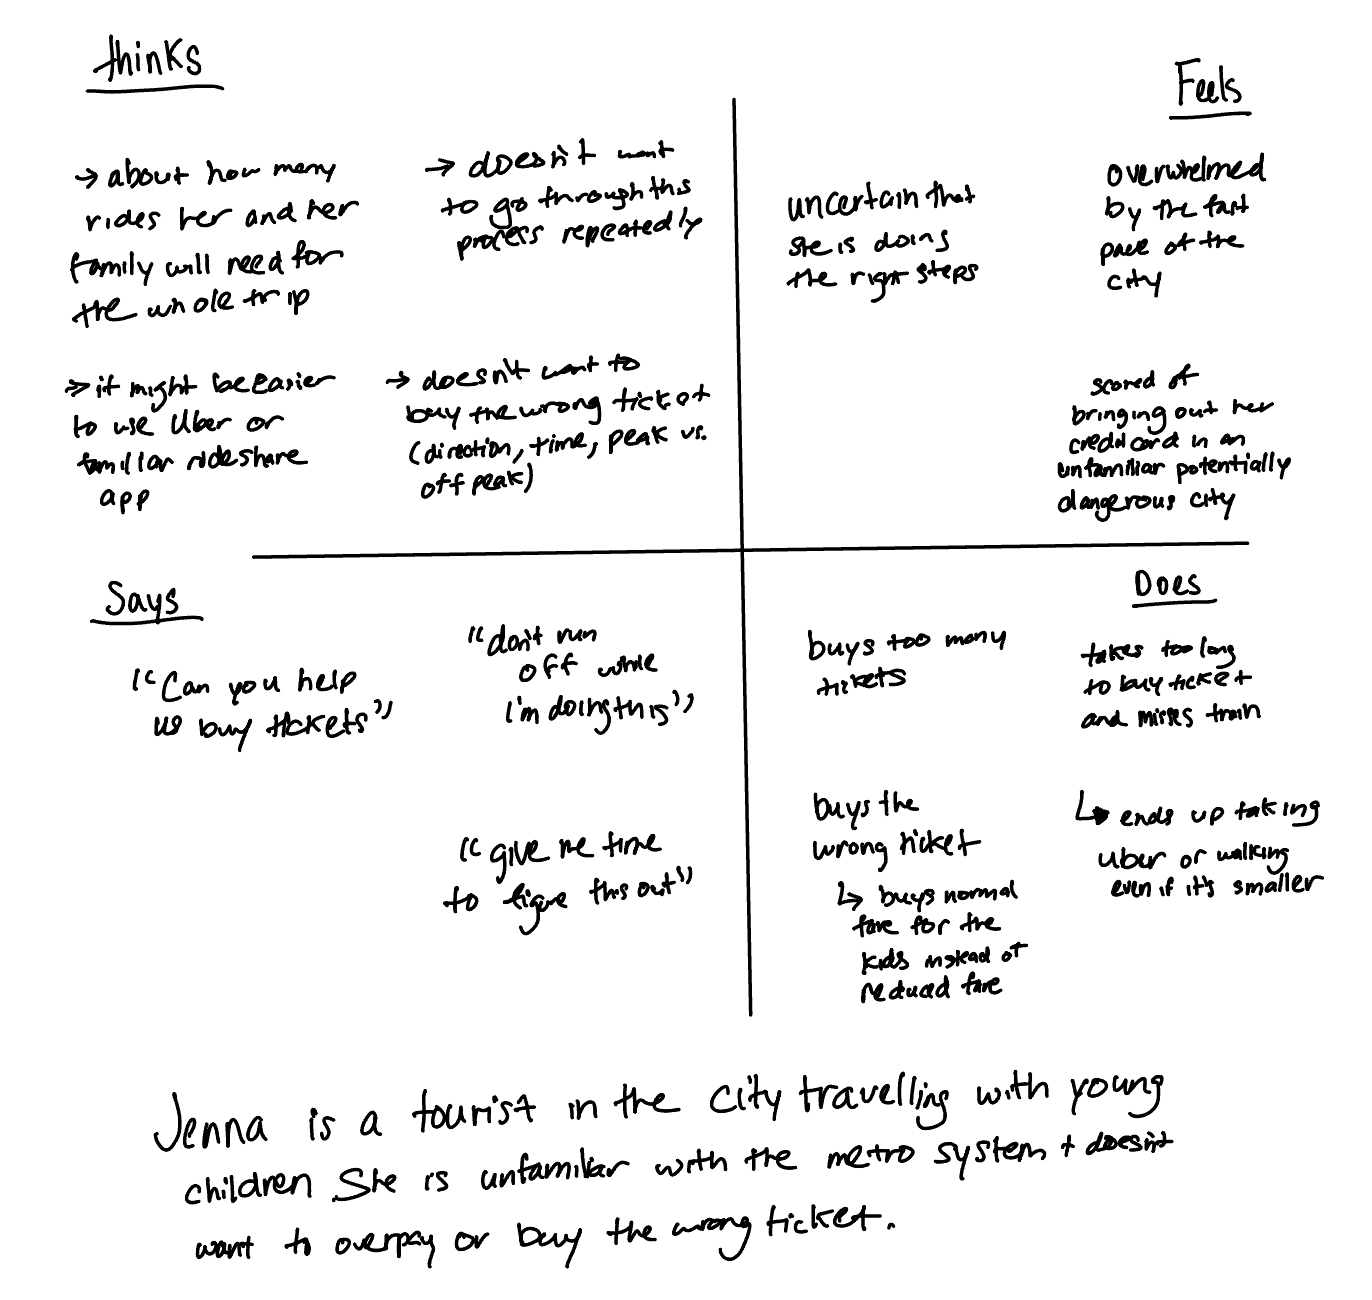 thinks
→ about how many
rides her and her
family will need for
the whole trip
→ doesn't want
to go through this
process repeatedly
→ it might be easier
to use Uber or
familiar rideshare
app
→ doesn't want to
buy the wrong ticket
(direction, time, peak vs.
off peak)
Feels
uncertain that
she is doing
the right steps
overwhelmed
by the fast
pace of the
city
scared of
bringing out her
credit card in an
unfamiliar potentially
dangerous city
Says
"Can you help
us buy tickets"
"don't run
off while
I'm doing this"
"give me time
to figure this out"
Does
buys too many
tickets
takes too long
to buy ticket
and misses train
buys the
wrong ticket
↳ buys normal
fare for the
kids instead of
reduced fare
↳ ends up taking
Uber or walking
even if it's smaller
Jenna is a tourist in the city travelling with young
children She is unfamiliar with the metro system + doesn't
want to overpay or buy the wrong ticket.